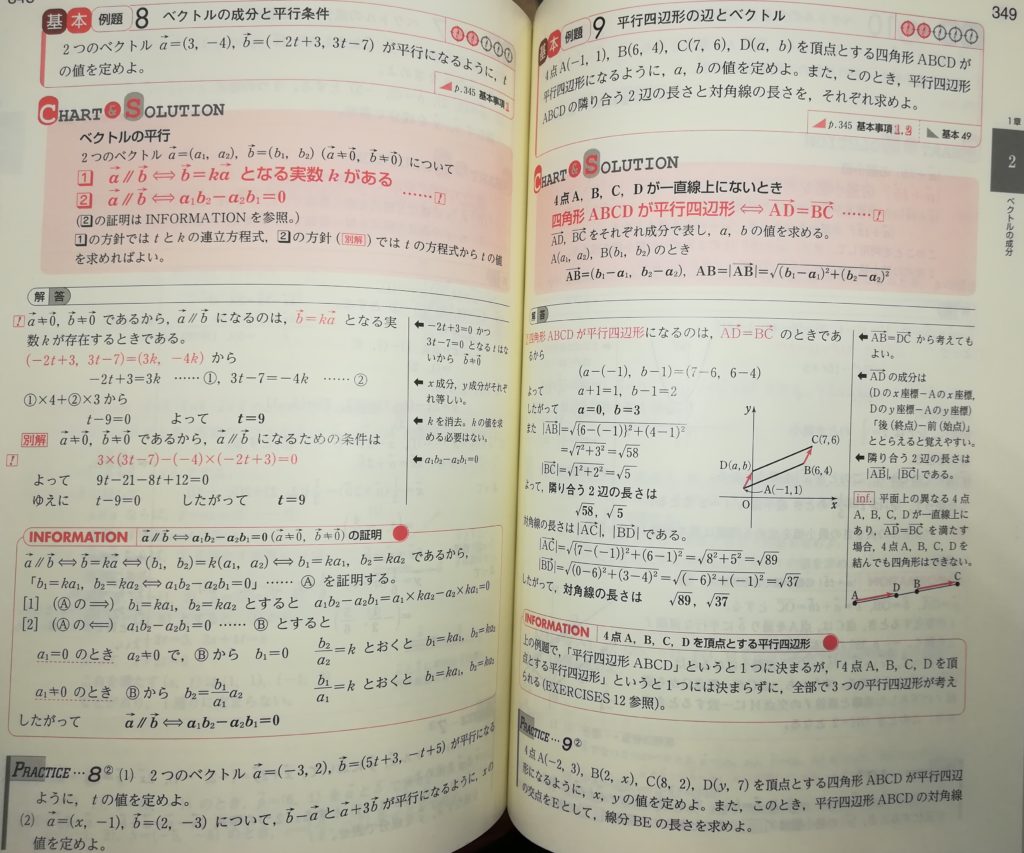 基本 例題 8 ベクトルの成分と平行条件
2つのベクトル a=(3, −4), b=(−2t+3, 3t−7) が平行になるように, t
の値を定めよ。
p.345 基本事項 1
CHART & SOLUTION
ベクトルの平行
2つのベクトル a=(a₁, a₂), b=(b₁, b₂) (a≠0, b≠0) について
1 a∥b⟺b=ka となる実数kがある
2 a∥b⟺a₁b₂−a₂b₁=0 ……!
(2の証明はINFORMATIONを参照。)
1の方針ではtとkの連立方程式, 2の方針(別解)ではtの方程式からtの値
を求めればよい。
解答
! a≠0, b≠0 であるから, a∥b になるのは, b=ka となる実
数kが存在するときである。
(−2t+3, 3t−7)=(3k, −4k) から
−2t+3=3k ……①, 3t−7=−4k ……②
①×4+②×3から
t−9=0 よって t=9
別解 a≠0, b≠0 であるから, a∥b になるための条件は
! 3×(3t−7)−(−4)×(−2t+3)=0
よって 9t−21−8t+12=0
ゆえに t−9=0 したがって t=9
←−2t+3=0 かつ
3t−7=0 となるtはな
いから b≠0
←x成分, y成分がそれぞ
れ等しい。
←kを消去。kの値を求
める必要はない。
←a₁b₂−a₂b₁=0
INFORMATION a∥b⟺a₁b₂−a₂b₁=0 (a≠0, b≠0) の証明
a∥b⟺b=ka⟺(b₁, b₂)=k(a₁, a₂)⟺b₁=ka₁, b₂=ka₂ であるから,
「b₁=ka₁, b₂=ka₂⟺a₁b₂−a₂b₁=0」…… Ⓐ を証明する。
[1] (Ⓐの⟹) b₁=ka₁, b₂=ka₂ とすると a₁b₂−a₂b₁=a₁×ka₂−a₂×ka₁=0
[2] (Ⓐの⟸) a₁b₂−a₂b₁=0 …… Ⓑ とすると
a₁=0 のとき a₂≠0 で, Ⓑから b₁=0 b₂/a₂=k とおくと b₁=ka₁, b₂=ka₂
a₁≠0 のとき Ⓑから b₂=b₁/a₁ a₂ b₁/a₁=k とおくと b₁=ka₁, b₂=ka₂
したがって a∥b⟺a₁b₂−a₂b₁=0
PRACTICE…8② (1) 2つのベクトル a=(−3, 2), b=(5t+3, −t+5) が平行になる
ように, tの値を定めよ。
(2) a=(x, −1), b=(2, −3) について, b−a と a+3b が平行になるように, xの
値を定めよ。
349
基本 例題 9 平行四辺形の辺とベクトル
4点A(−1, 1), B(6, 4), C(7, 6), D(a, b) を頂点とする四角形ABCDが
平行四辺形になるように, a, bの値を定めよ。また, このとき, 平行四辺形
ABCDの隣り合う2辺の長さと対角線の長さを, それぞれ求めよ。
p.345 基本事項 1, 3 基本 49
CHART & SOLUTION
4点A, B, C, Dが一直線上にないとき
四角形ABCDが平行四辺形⟺AD=BC ……!
AD, BCをそれぞれ成分で表し, a, bの値を求める。
A(a₁, a₂), B(b₁, b₂) のとき
AB=(b₁−a₁, b₂−a₂), AB=|AB|=√(b₁−a₁)²+(b₂−a₂)²
解答
四角形ABCDが平行四辺形になるのは, AD=BC のときであ
るから
(a−(−1), b−1)=(7−6, 6−4)
よって a+1=1, b−1=2
したがって a=0, b=3
また |AB|=√{6−(−1)}²+(4−1)²
=√7²+3²=√58
|BC|=√1²+2²=√5
よって, 隣り合う2辺の長さは
√58, √5
対角線の長さは |AC|, |BD| である。
|AC|=√{7−(−1)}²+(6−1)²=√8²+5²=√89
|BD|=√(0−6)²+(3−4)²=√(−6)²+(−1)²=√37
したがって, 対角線の長さは √89, √37
y
C(7,6)
D(a, b)
B(6,4)
A(−1,1)
O
x
←AB=DC から考えても
よい。
←ADの成分は
(Dのx座標−Aのx座標,
Dのy座標−Aのy座標)
「後(終点)−前(始点)」
ととらえると覚えやすい。
←隣り合う2辺の長さは
|AB|, |BC| である。
inf. 平面上の異なる4点
A, B, C, Dが一直線上に
あり, AD=BC を満たす
場合, 4点A, B, C, Dを
結んでも四角形はできない。
A D B C
INFORMATION 4点A, B, C, Dを頂点とする平行四辺形
上の例題で,「平行四辺形ABCD」というと1つに決まるが,「4点A, B, C, Dを頂
点とする平行四辺形」というと1つには決まらずに, 全部で3つの平行四辺形が考え
られる(EXERCISES 12 参照)。
PRACTICE…9②
4点A(−2, 3), B(2, x), C(8, 2), D(y, 7) を頂点とする四角形ABCDが平行四辺
形になるように, x, yの値を定めよ。また, このとき, 平行四辺形ABCDの対角線
の交点をEとして, 線分BEの長さを求めよ。
1章
2
ベクトルの成分